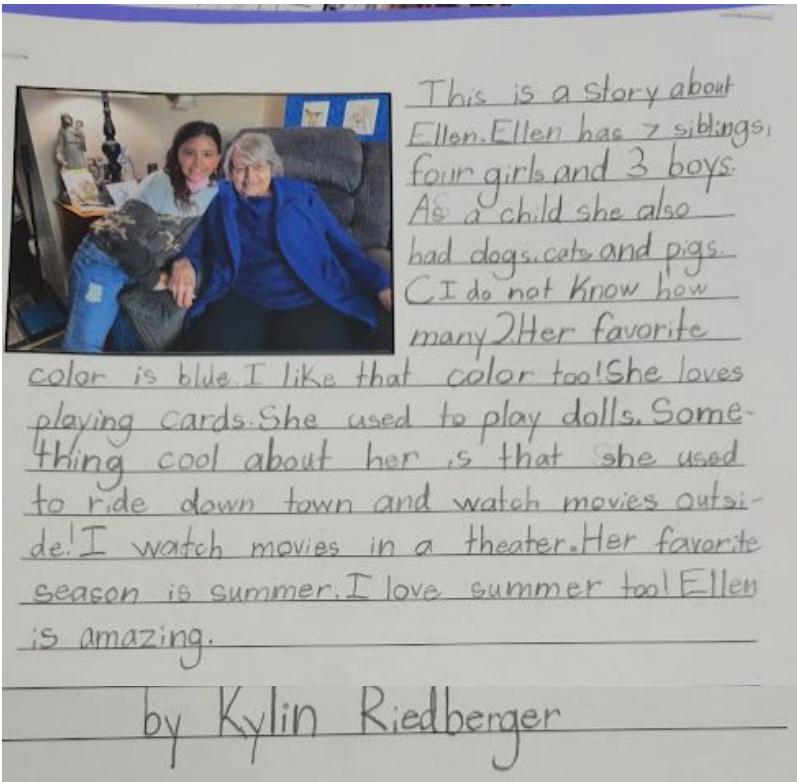 This is a story about
Ellen. Ellen has 7 siblings,
four girls and 3 boys.
As a child she also
had dogs, cats and pigs.
(I do not know how
many). Her favorite
color is blue. I like that color too! She loves
playing cards. She used to play dolls. Some-
thing cool about her is that she used
to ride down town and watch movies outsi-
de! I watch movies in a theater. Her favorite
season is summer. I love summer too! Ellen
is amazing.
by Kylin Riedberger